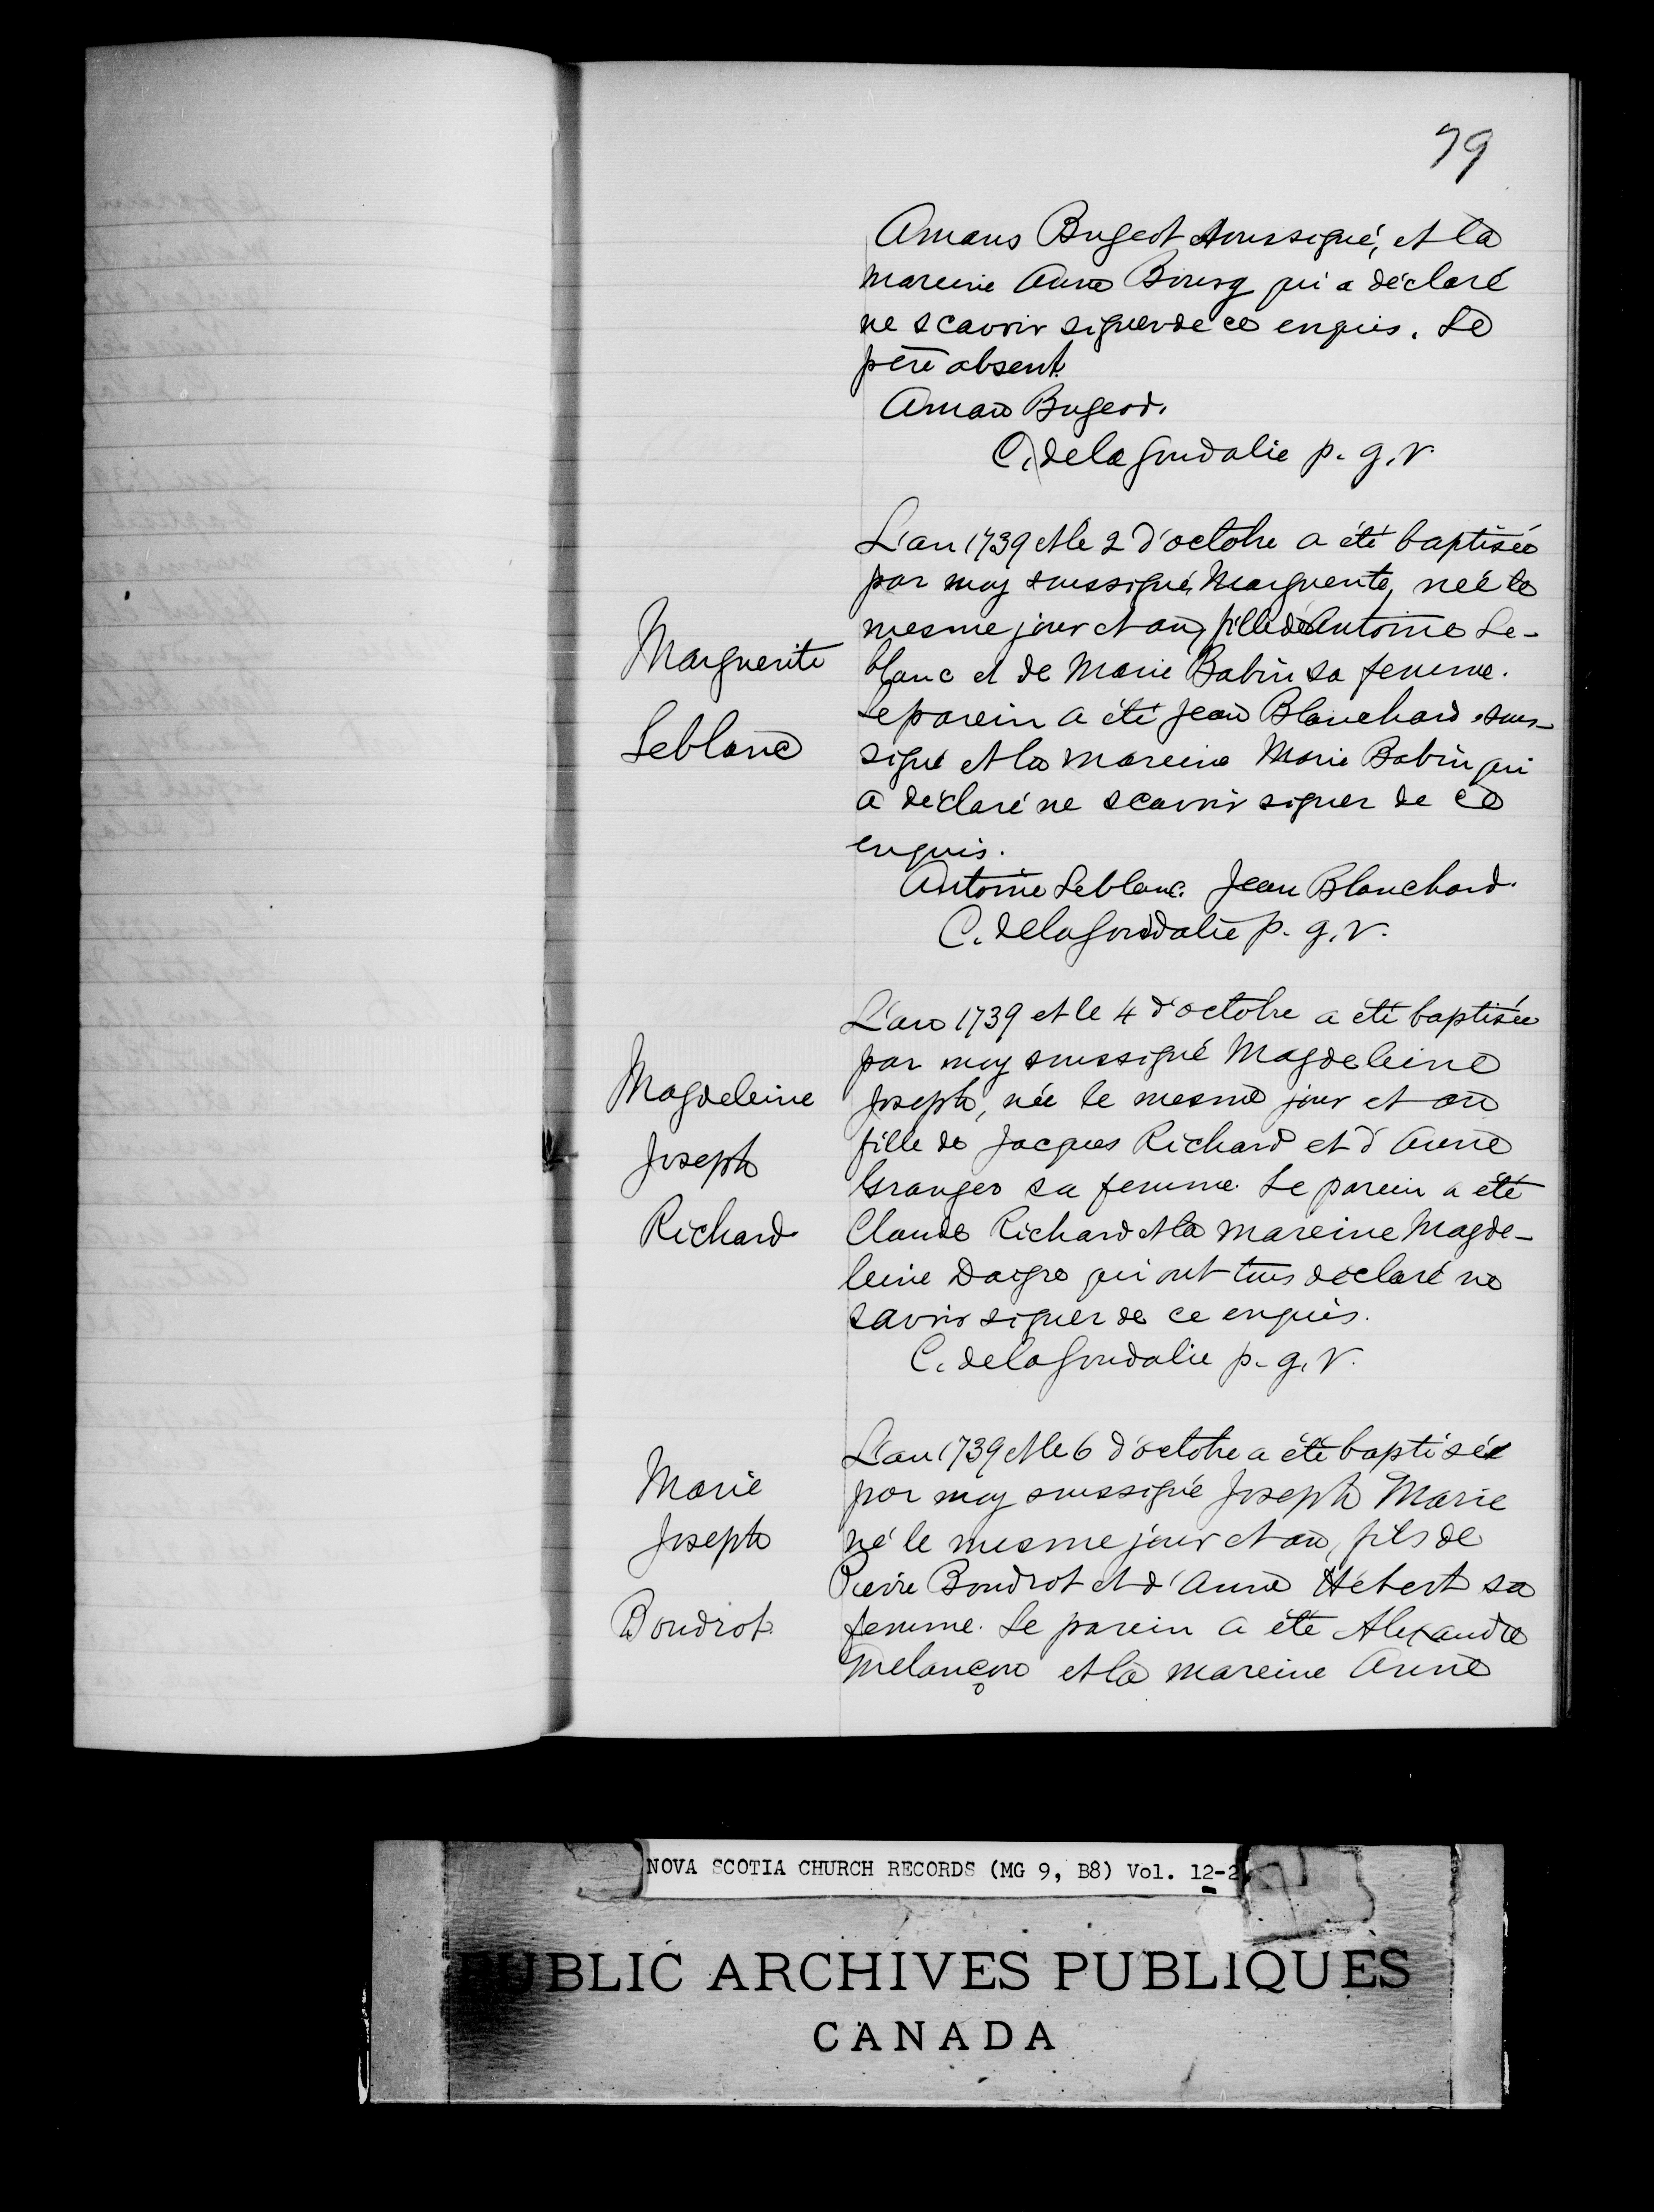 79
Amans Bugeot soussigné, et la
mareine Anne Bourg qui a déclaré
ne scavoir signer de ce enquis. Le
père absent.
Aman Bugeod.
C. delagoudalie p. g. v.
L'an 1739 et le 2 d'octobre a été baptisée
par moy soussigné, Marguerite, née le
mesme jour et an, fille de Antoine Le-
blanc et de Marie Babin sa femme.
Le parein a été Jean Blanchard sous-
signé et la mareine Marie Babin qui
a déclaré ne scavoir signer de ce
enquis.
Marguerite
Leblanc
Antoine Leblanc. Jean Blanchard.
C. delagoudalie p. g. v.
L'an 1739 et le 4 d'octobre a été baptisée
par moy soussigné Magdeleine
Joseph, née le mesme jour et an
fille de Jacques Richard et d'Anne
Granger sa femme. Le parein a été
Claude Richard et la mareine Magde-
leine Daigre qui ont tous déclaré ne
savoir signer de ce enquis.
Magdeleine
Joseph
Richard
C. delagoudalie p. g. v.
L'an 1739 et le 6 d'octobre a été baptisé
par moy soussigné Joseph Marie
né le mesme jour et an, fils de
Pierre Boudrot et d'Anne Hébert sa
femme. Le parein a été Alexandre
Melançon et la mareine Anne
Marie
Joseph
Boudrot.
NOVA SCOTIA CHURCH RECORDS (MG 9, B8) Vol. 12-2
PUBLIC ARCHIVES PUBLIQUES
CANADA